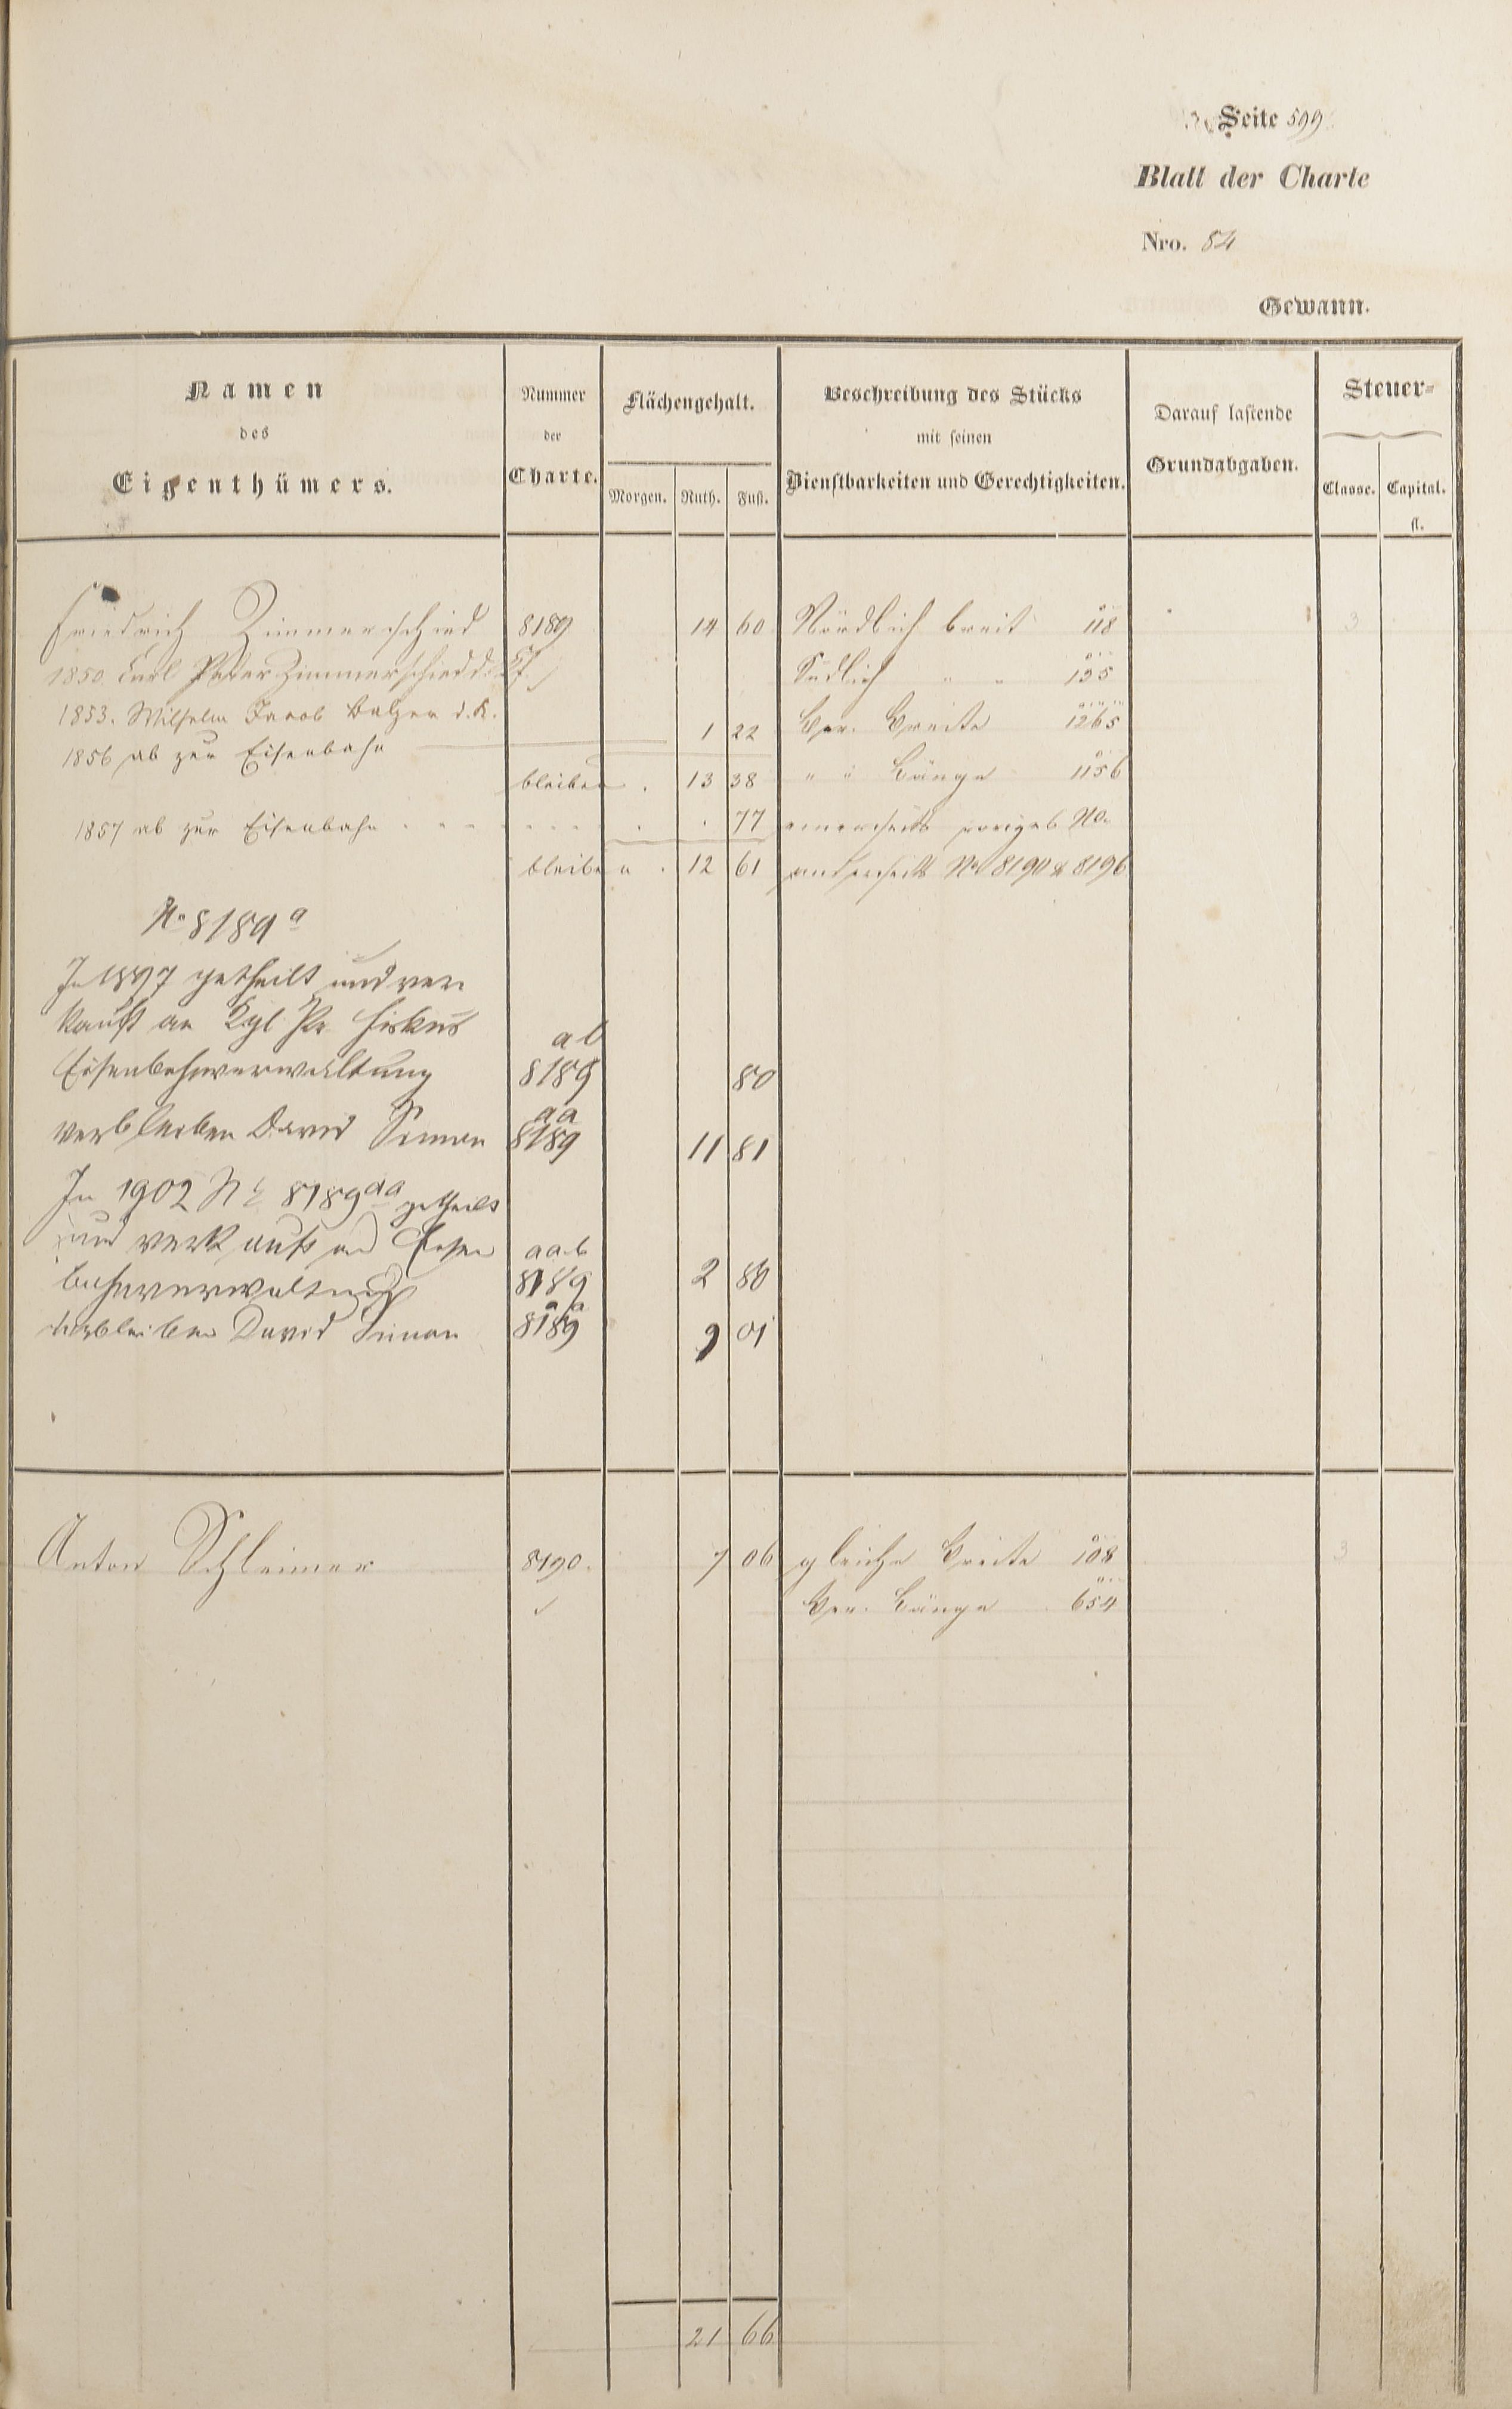 Seite 599
Blatt der Charte
Nro. 84
Gewann.
Namen
des
Eigenthümers.
Nummer
der
Charte.
Flächengehalt.
Morgen. Ruth. Fuß.
Beschreibung des Stücks
mit seinen
Dienstbarkeiten und Gerechtigkeiten.
Darauf lastende
Grundabgaben.
Steuer-
Classe. Capital.
fl.
Friedrich Zimmerschied 8189 14 60 Nördlich breit 118 3
1850 Carl Peter Zimmerschied Südlich " " 135
1853. Wilhelm Jacob Balzer d. K. 1 22 Ger. Breite 1265
1856 ab zur Eisenbahn
bleiben . 13 38 " " Länge 1156
1857 ab zur Eisenbahn 77 einerseits voriges No.
bleiben . 12 61 anderseits No 8190 & 8196
No 8189 a
In 1897 getheilt und ver
kauft an Kgl Pr Fiskus
Eisenbahnverwaltung 8189 ab 80
verbleiben David Simon 8189 aa 11 81
In 1902 No 8189 aa getheilt
und verkauft an Eisen
bahnverwaltung 8189 aab 2 80
verbleiben David Simon 8189 9 01
Anton Schleimer 8190. 7 06 gleiche Breite 108 3
Ger. Länge 654
21 66